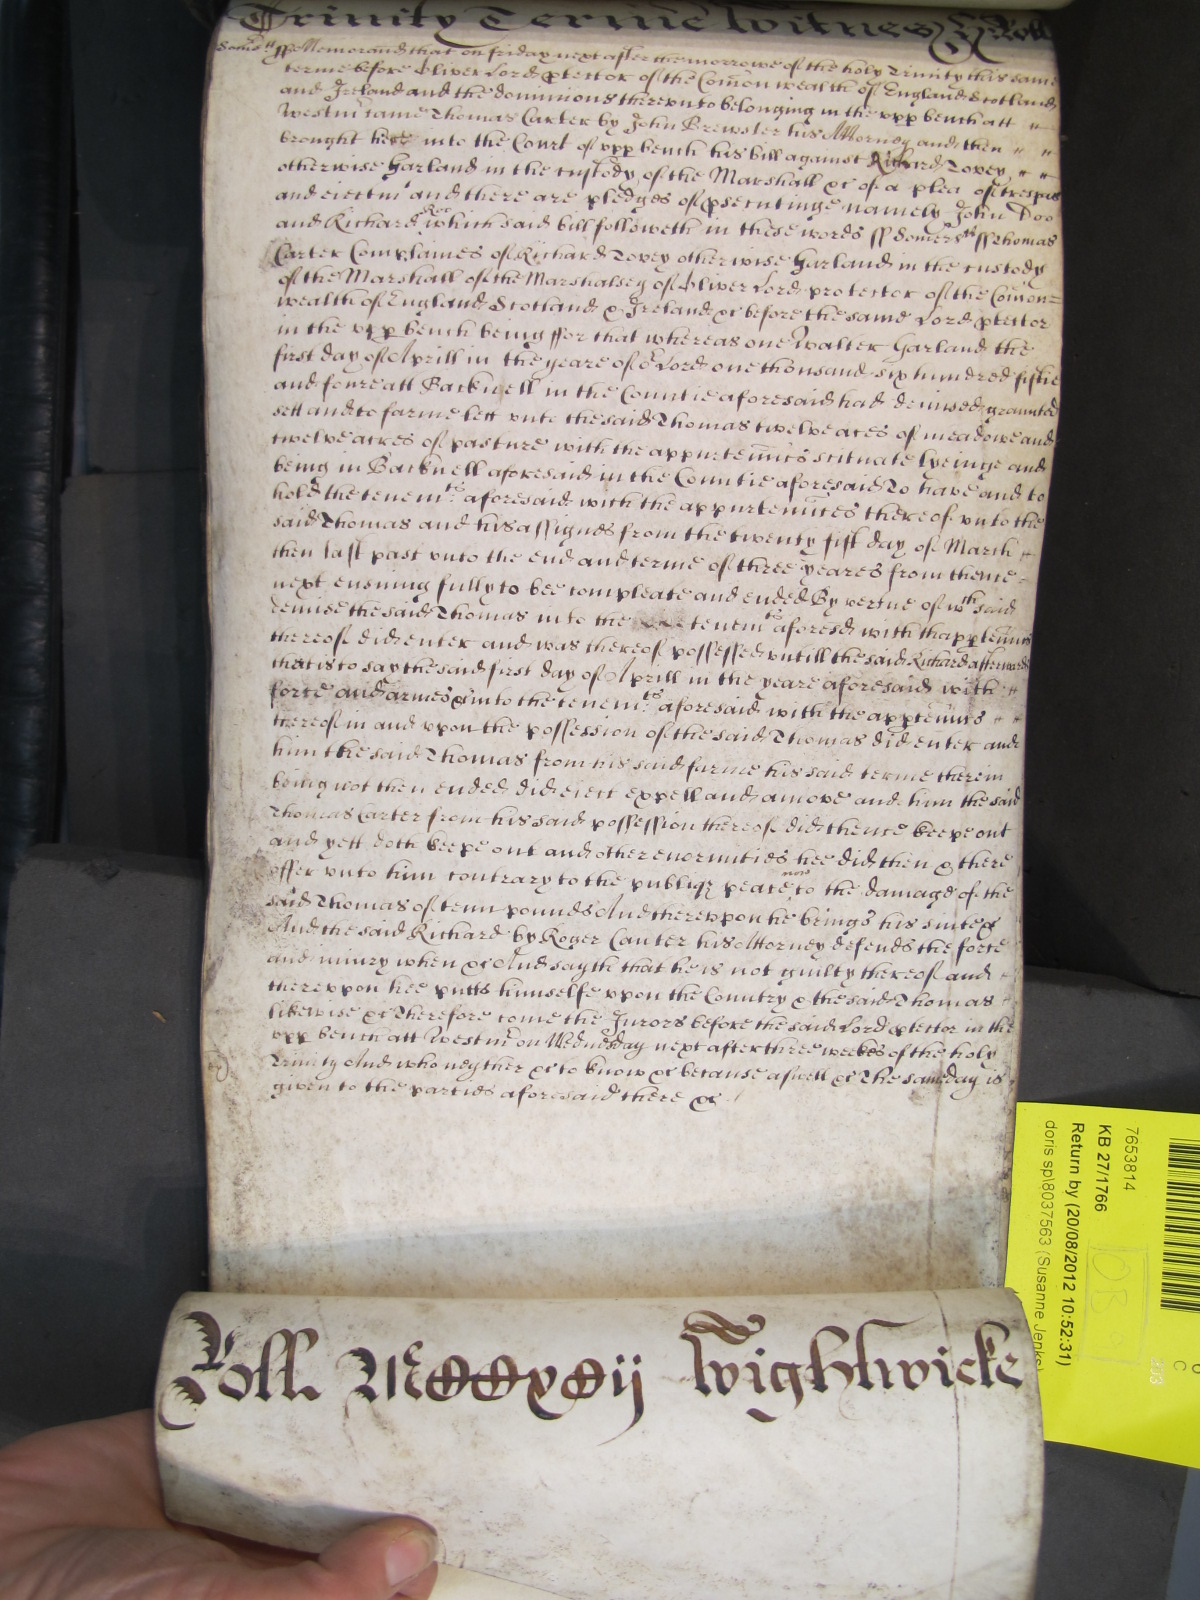 Trinity Terme Witness H: Roll
Somst ss Memorand that on friday next after the morrowe of the holy Trinity this same
terme before Oliver Lord ptector of the Comon wealth of England Scotland
and Ireland and the dominions thereunto belonging in the upp bench att
Westmr came Thomas Carter by John Brewster his Attorney and then
brought here into the Court of upp bench his bill against Richard Tovey
otherwise Garland in the custody of the Marshall &c of a plea of trespas
and eiectmt and there are pledges of psecutinge namely John Doo
and Richard Roo which said bill followeth in these words ss Somerstt ss Thomas
Carter Complaines of Richard Tovey otherwise Garland in the custody
of the Marshall of the Marshalsey of Oliver Lord protector of the Comon=
wealth of England Scotland & Ireland &c before the same Lord ptector
in the upp bench being ffor that whereas one Walter Garland the
first day of Aprill in the yeare of or Lord one thousand six hundred fiftie
and foure att Backwell in the Countie aforesaid had demised graunted
sett and to farme lett unto the said Thomas twelve acres of meadowe and
twelve acres of pasture with the appurtennces scituate lyeinge and
being in Backwell aforesaid in the Countie aforesaid To have and to
hold the tenemts aforesaid with the appurtennces thereof unto the
said Thomas and his assignes from the twenty fift day of March
then last past unto the end and terme of three yeares from thence
next ensuing fully to bee compleate and ended By vertue of wch said
demise the said Thomas in to the tenemts aforesd with thapptennces
thereof did enter and was thereof possessed untill the said Richard afterwards
that is to say the said first day of Aprill in the yeare aforesaid with
force and armes &c into the tenemts aforesaid with the apptennces
thereof in and upon the possession of the said Thomas did enter and
him the said Thomas from his said farme his said terme therein
being not then ended did eiect expell and amove and him the said
Thomas Carter from his said possession thereof did thence keepe out
and yett doth keepe out and other enormities hee did then & there
offer unto him contrary to the publiq peace now to the damage of the
said Thomas of tenn pounds And thereupon he brings his suite &c
And the said Richard by Roger Canter his Attorney defends the force
and iniury when &c And sayth that he is not guilty thereof and
thereuppon hee putts himselfe upon the Country & the said Thomas
likewise &c Therefore come the Jurors before the said Lord ptector in the
upp bench att Westmr on Wednesday next after three weekes of the holy
Trinity And who neyther &c to know &c because aswell &c The same day is
given to the parties aforesaid there &c
Roll Wightwicke
7653814
KB 27/1766
Return by (20/08/2012 10:52:31)
doris sp\8037563 (Susanne Jenks)